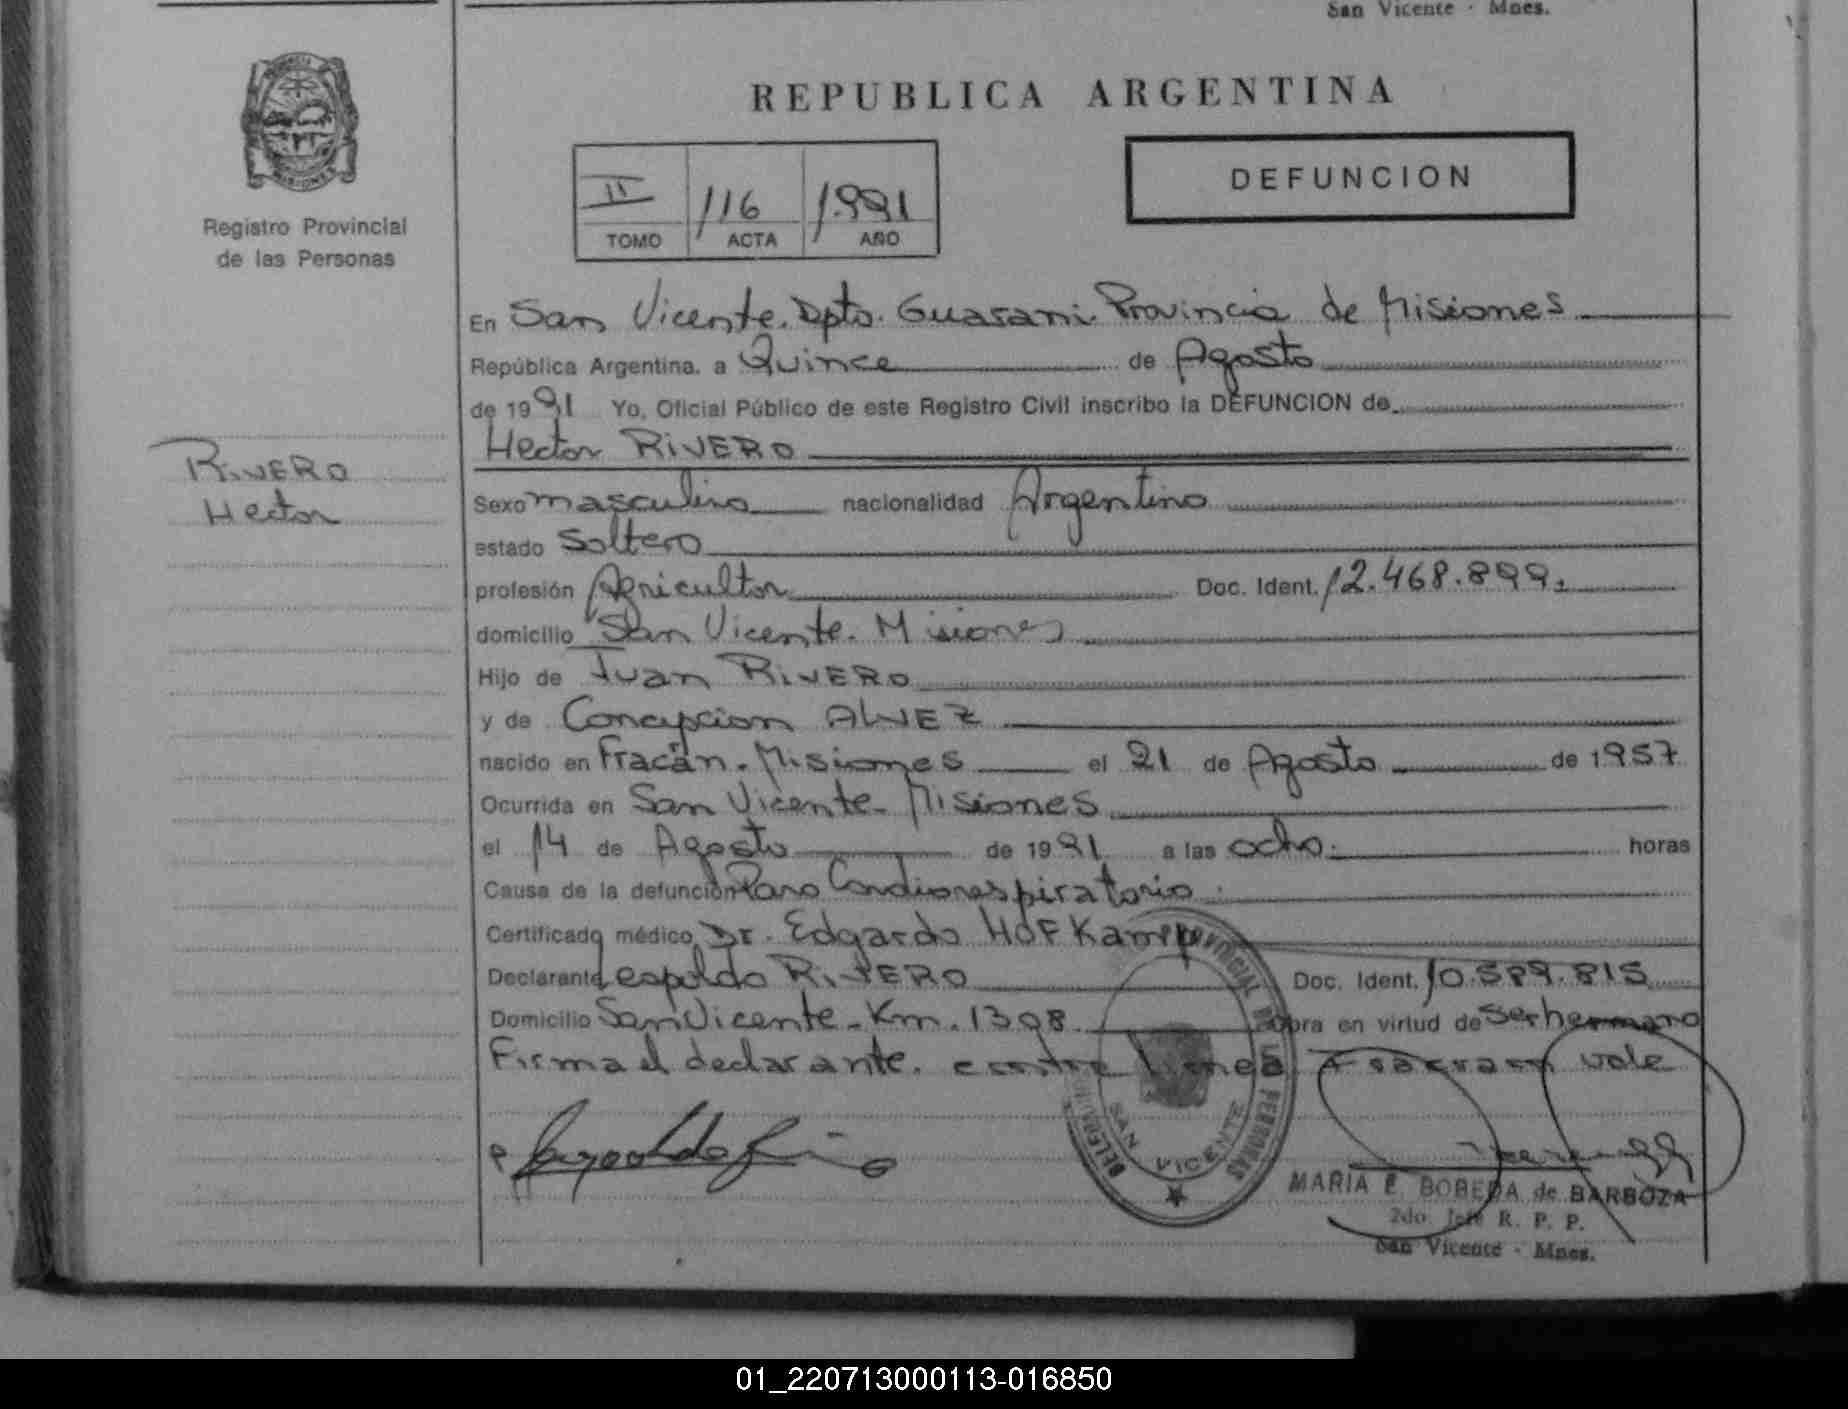 San Vicente - Mnes.
REPUBLICA ARGENTINA
PROVINCIA
MISIONES
Registro Provincial
de las Personas
II 116 1.991
TOMO ACTA AÑO
DEFUNCION
En San Vicente. Dpto. Guarani. Provincia de Misiones
República Argentina. a Quince de Agosto
de 1991 Yo, Oficial Público de este Registro Civil inscribo la DEFUNCION de
Hector RIVERO
RIVERO
Hector
Sexo masculino nacionalidad Argentino
estado Soltero
profesión Agricultor Doc. Ident. 12.468.899.
domicilio San Vicente. Misiones
Hijo de Juan RIVERO
y de Concepcion ALVEZ
nacido en Fracán. Misiones el 21 de Agosto de 1957
Ocurrida en San Vicente- Misiones
el 14 de Agosto de 1991 a las ocho. horas
Causa de la defunción Paro Cardiorespiratorio.
Certificado médico Dr. Edgardo HOFKamp
Declarante Leopoldo RIVERO Doc. Ident. 10.589.815
Domicilio San Vicente- Km. 1308. Obra en virtud de Ser hermano
Firma el declarante. e entre linea vale
SAN VICENTE
MARIA E. BOBEDA de BARBOZA
2do. Jefe R. P. P.
San Vicente - Mnes.
01_220713000113-016850